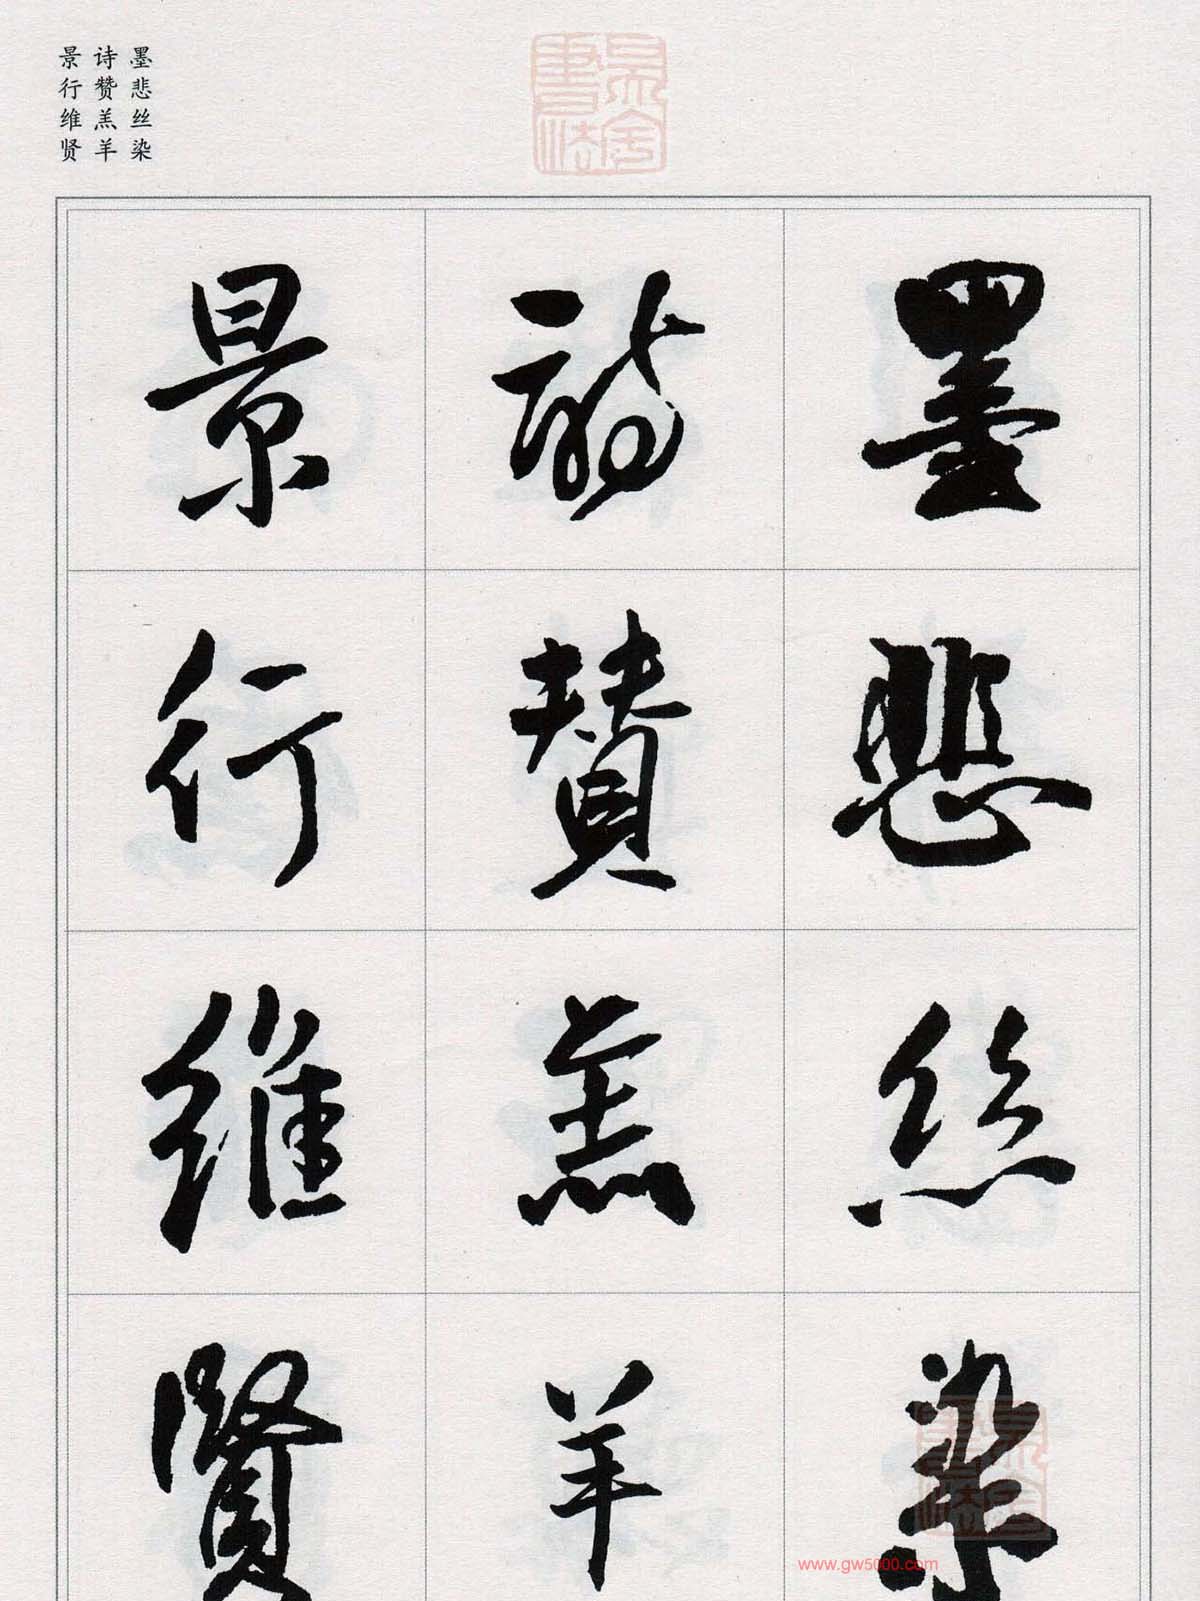 墨悲丝染
诗赞羔羊
景行维贤
墨悲絲染
詩贊羔羊
景行維賢
www.gw5000.com